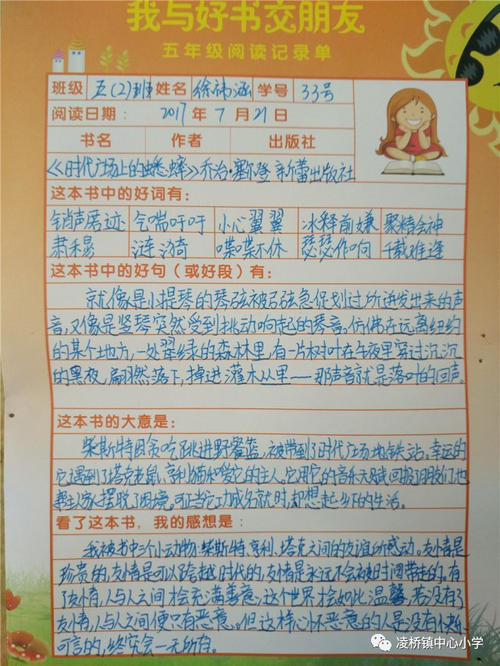 我与好书交朋友
五年级阅读记录单
班级 五(2)班 姓名 徐祎涵 学号 33号
阅读日期： 2017 年 7 月 21 日
书名 作者 出版社
《时代广场上的蟋蟀》 乔治·塞尔登 新蕾出版社
这本书中的好词有：
销声匿迹 气喘吁吁 小心翼翼 冰释前嫌 聚精会神
肃穆 涟漪 喋喋不休 瑟瑟作响 千载难逢
这本书中的好句（或好段）有：
就像是小提琴的琴弦被弓弦急促划过所迸发出来的声
音，又像是竖琴突然受到挑动响起的琴音。仿佛在远离纽约
的某个地方，一处翠绿的森林里，有一片树叶在午夜里穿过沉沉
的黑夜，翩然落下，掉进灌木丛里——那声音就是落叶的回声。
这本书的大意是：
柴斯特因贪吃跳进野餐篮，被带到了时代广场地铁站。幸运的
它遇到了塔克老鼠，亨利猫和爱它的主人。它用它的音乐天赋回报了朋友们，也
帮主人家摆脱了困境。可正当它功成名就时，却想起乡下的生活。
看了这本书，我的感想是：
我被书中三个小动物：柴斯特，亨利，塔克之间的友谊所感动。友情是
珍贵的，友情是可以跨越时代的，友情是永远不会被时间带走的。有
了友情，人与人之间会充满善意，这个世界会如此温馨。若没有了
友情，人与人之间便只有恶意。但这样心怀恶意的人是没有快乐
可言的，终究会一无所有。
凌桥镇中心小学